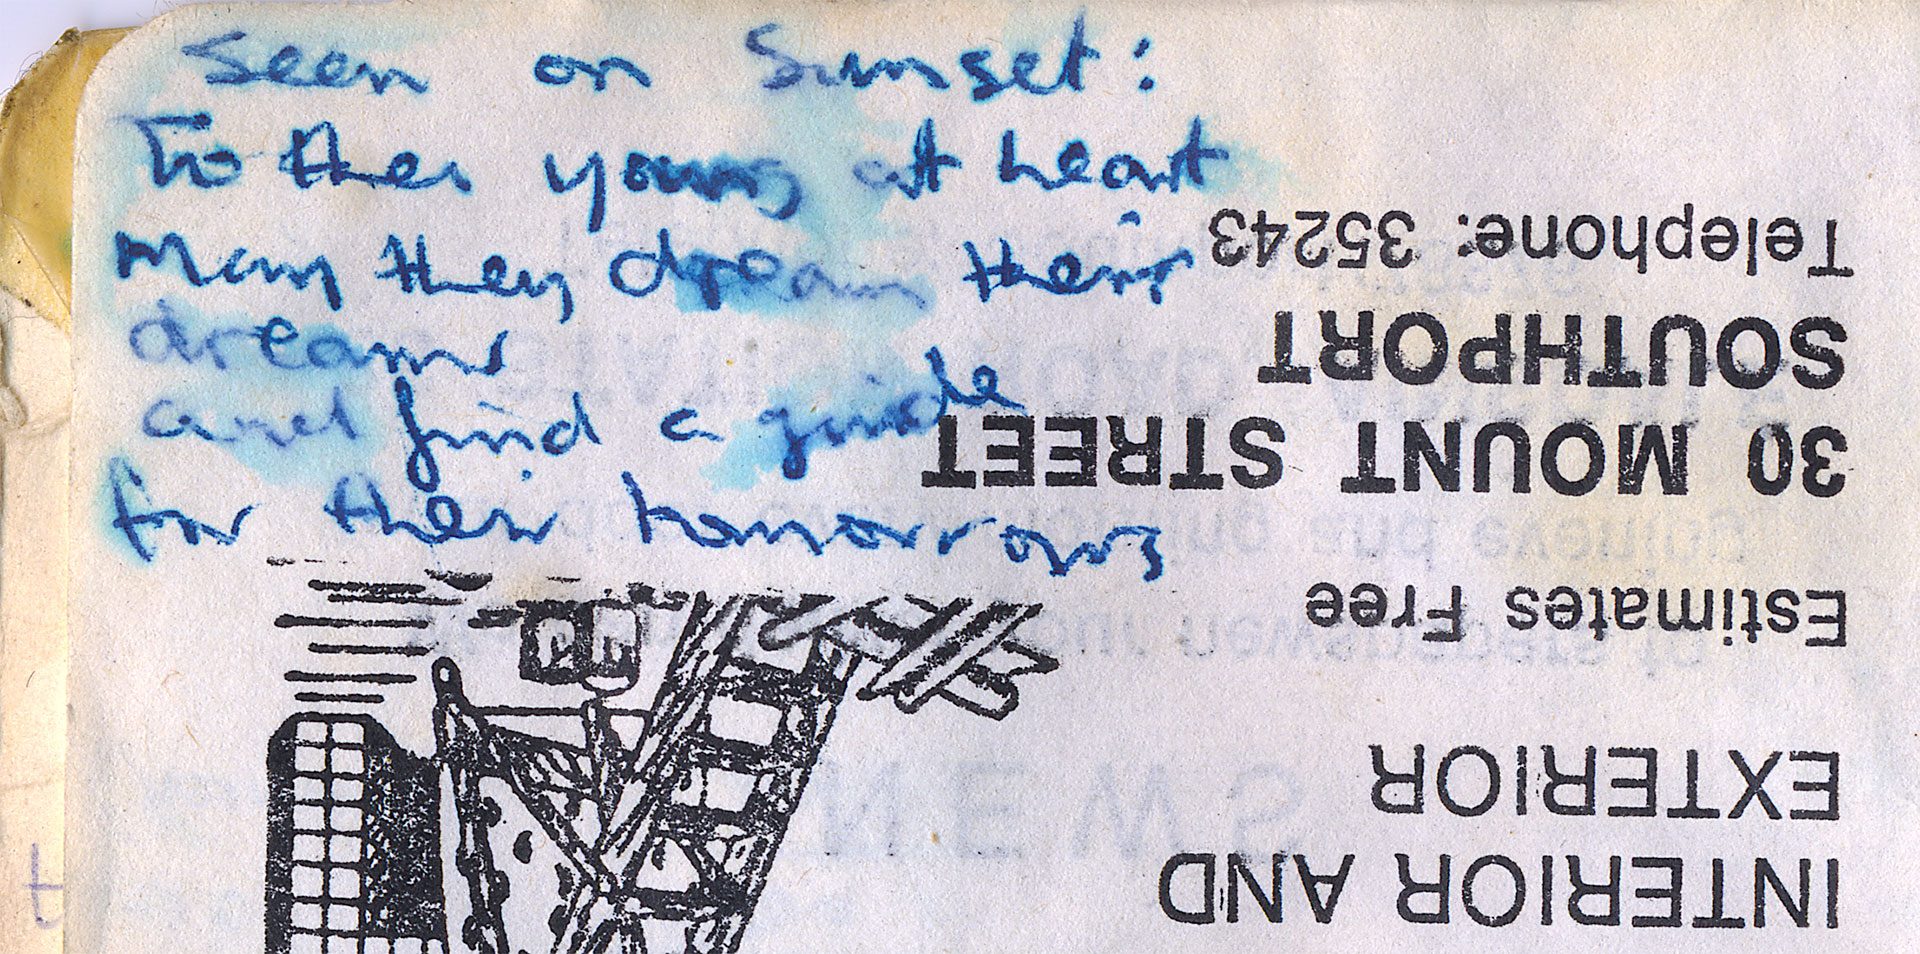 Seen on Sunset:
To the young at heart
May they dream their
dreams
and find a guide
for their tomorrows
INTERIOR AND
EXTERIOR
Estimates Free
30 MOUNT STREET
SOUTHPORT
Telephone: 35243